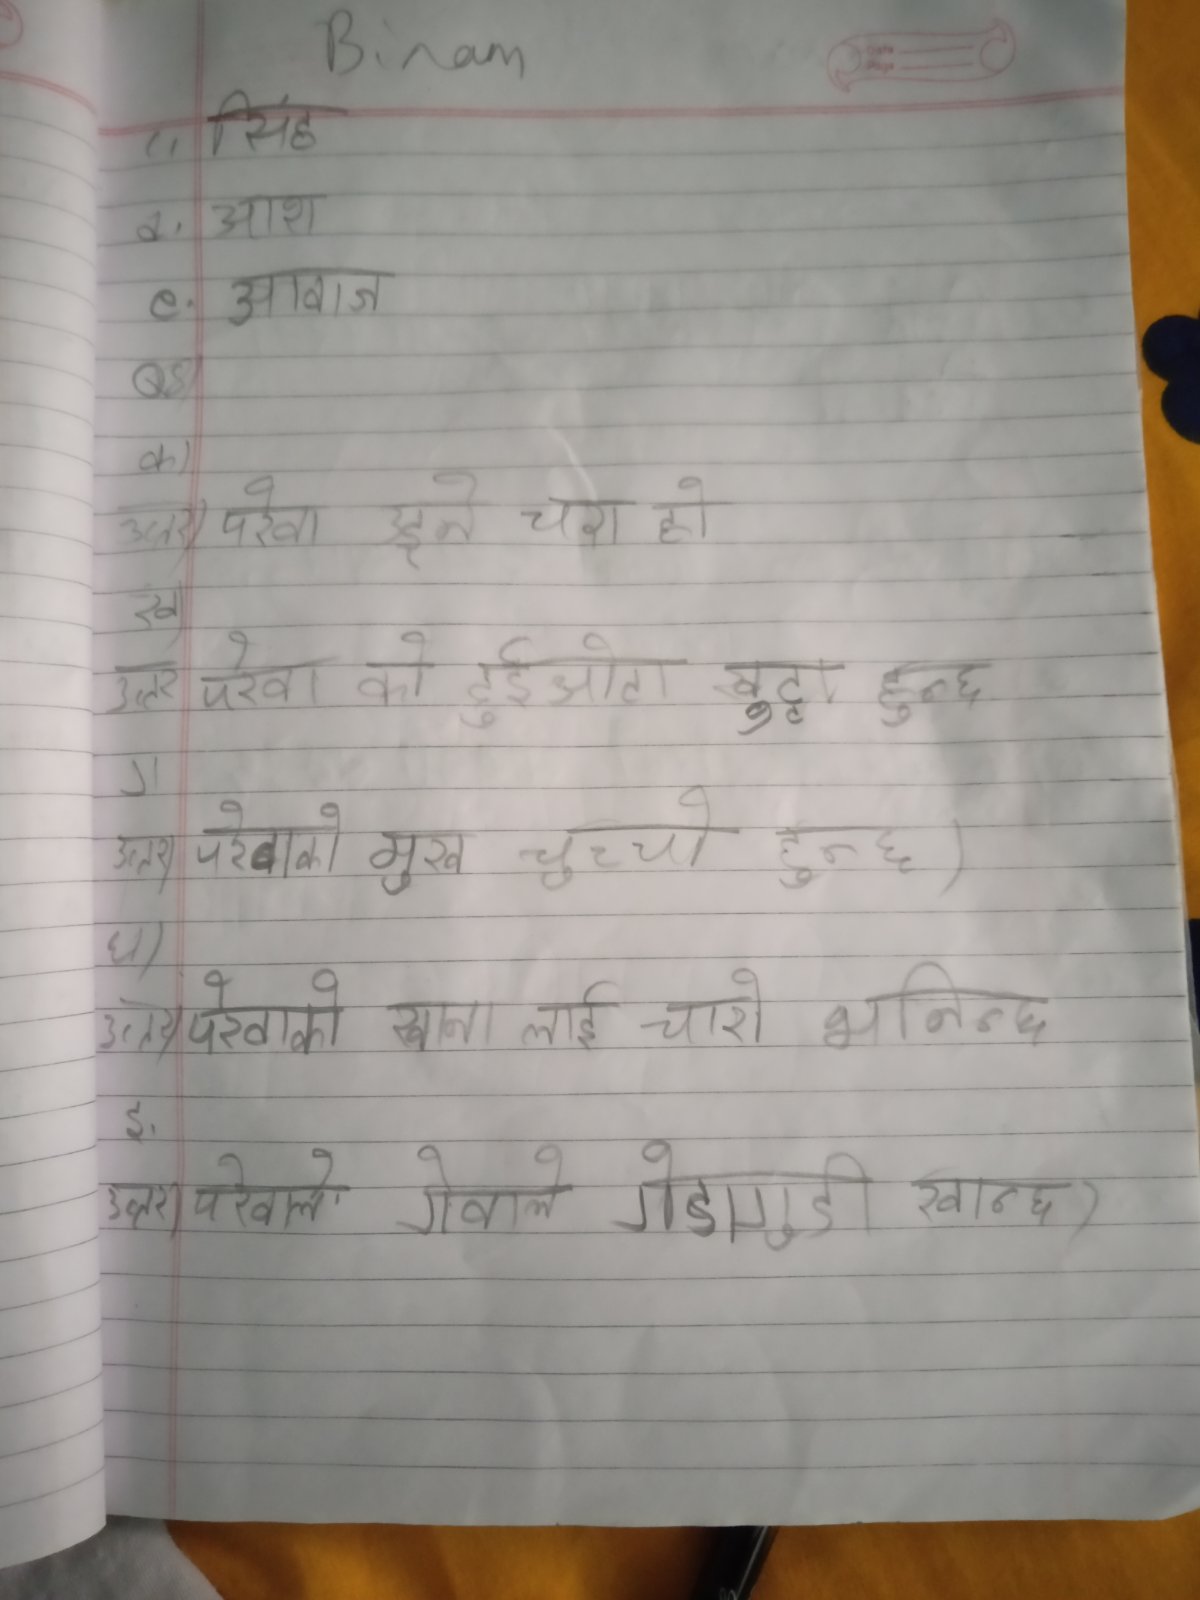 Binam
Date
Page
c. सिंह
d. आश
e. आवाज
Q5)
क)
उत्तर) परेवा उड्ने चरा हो
ख)
उत्तर परेवा को दुईओटा खुट्टा हुन्छ
ग
उत्तर) परेवाको मुख चुच्चो हुन्छ)
घ)
उत्तर) परेवाको खाना लाई चारो भनिन्छ
ङ.
उत्तर) परेवाले गेवाले गेडागुडी खान्छ)